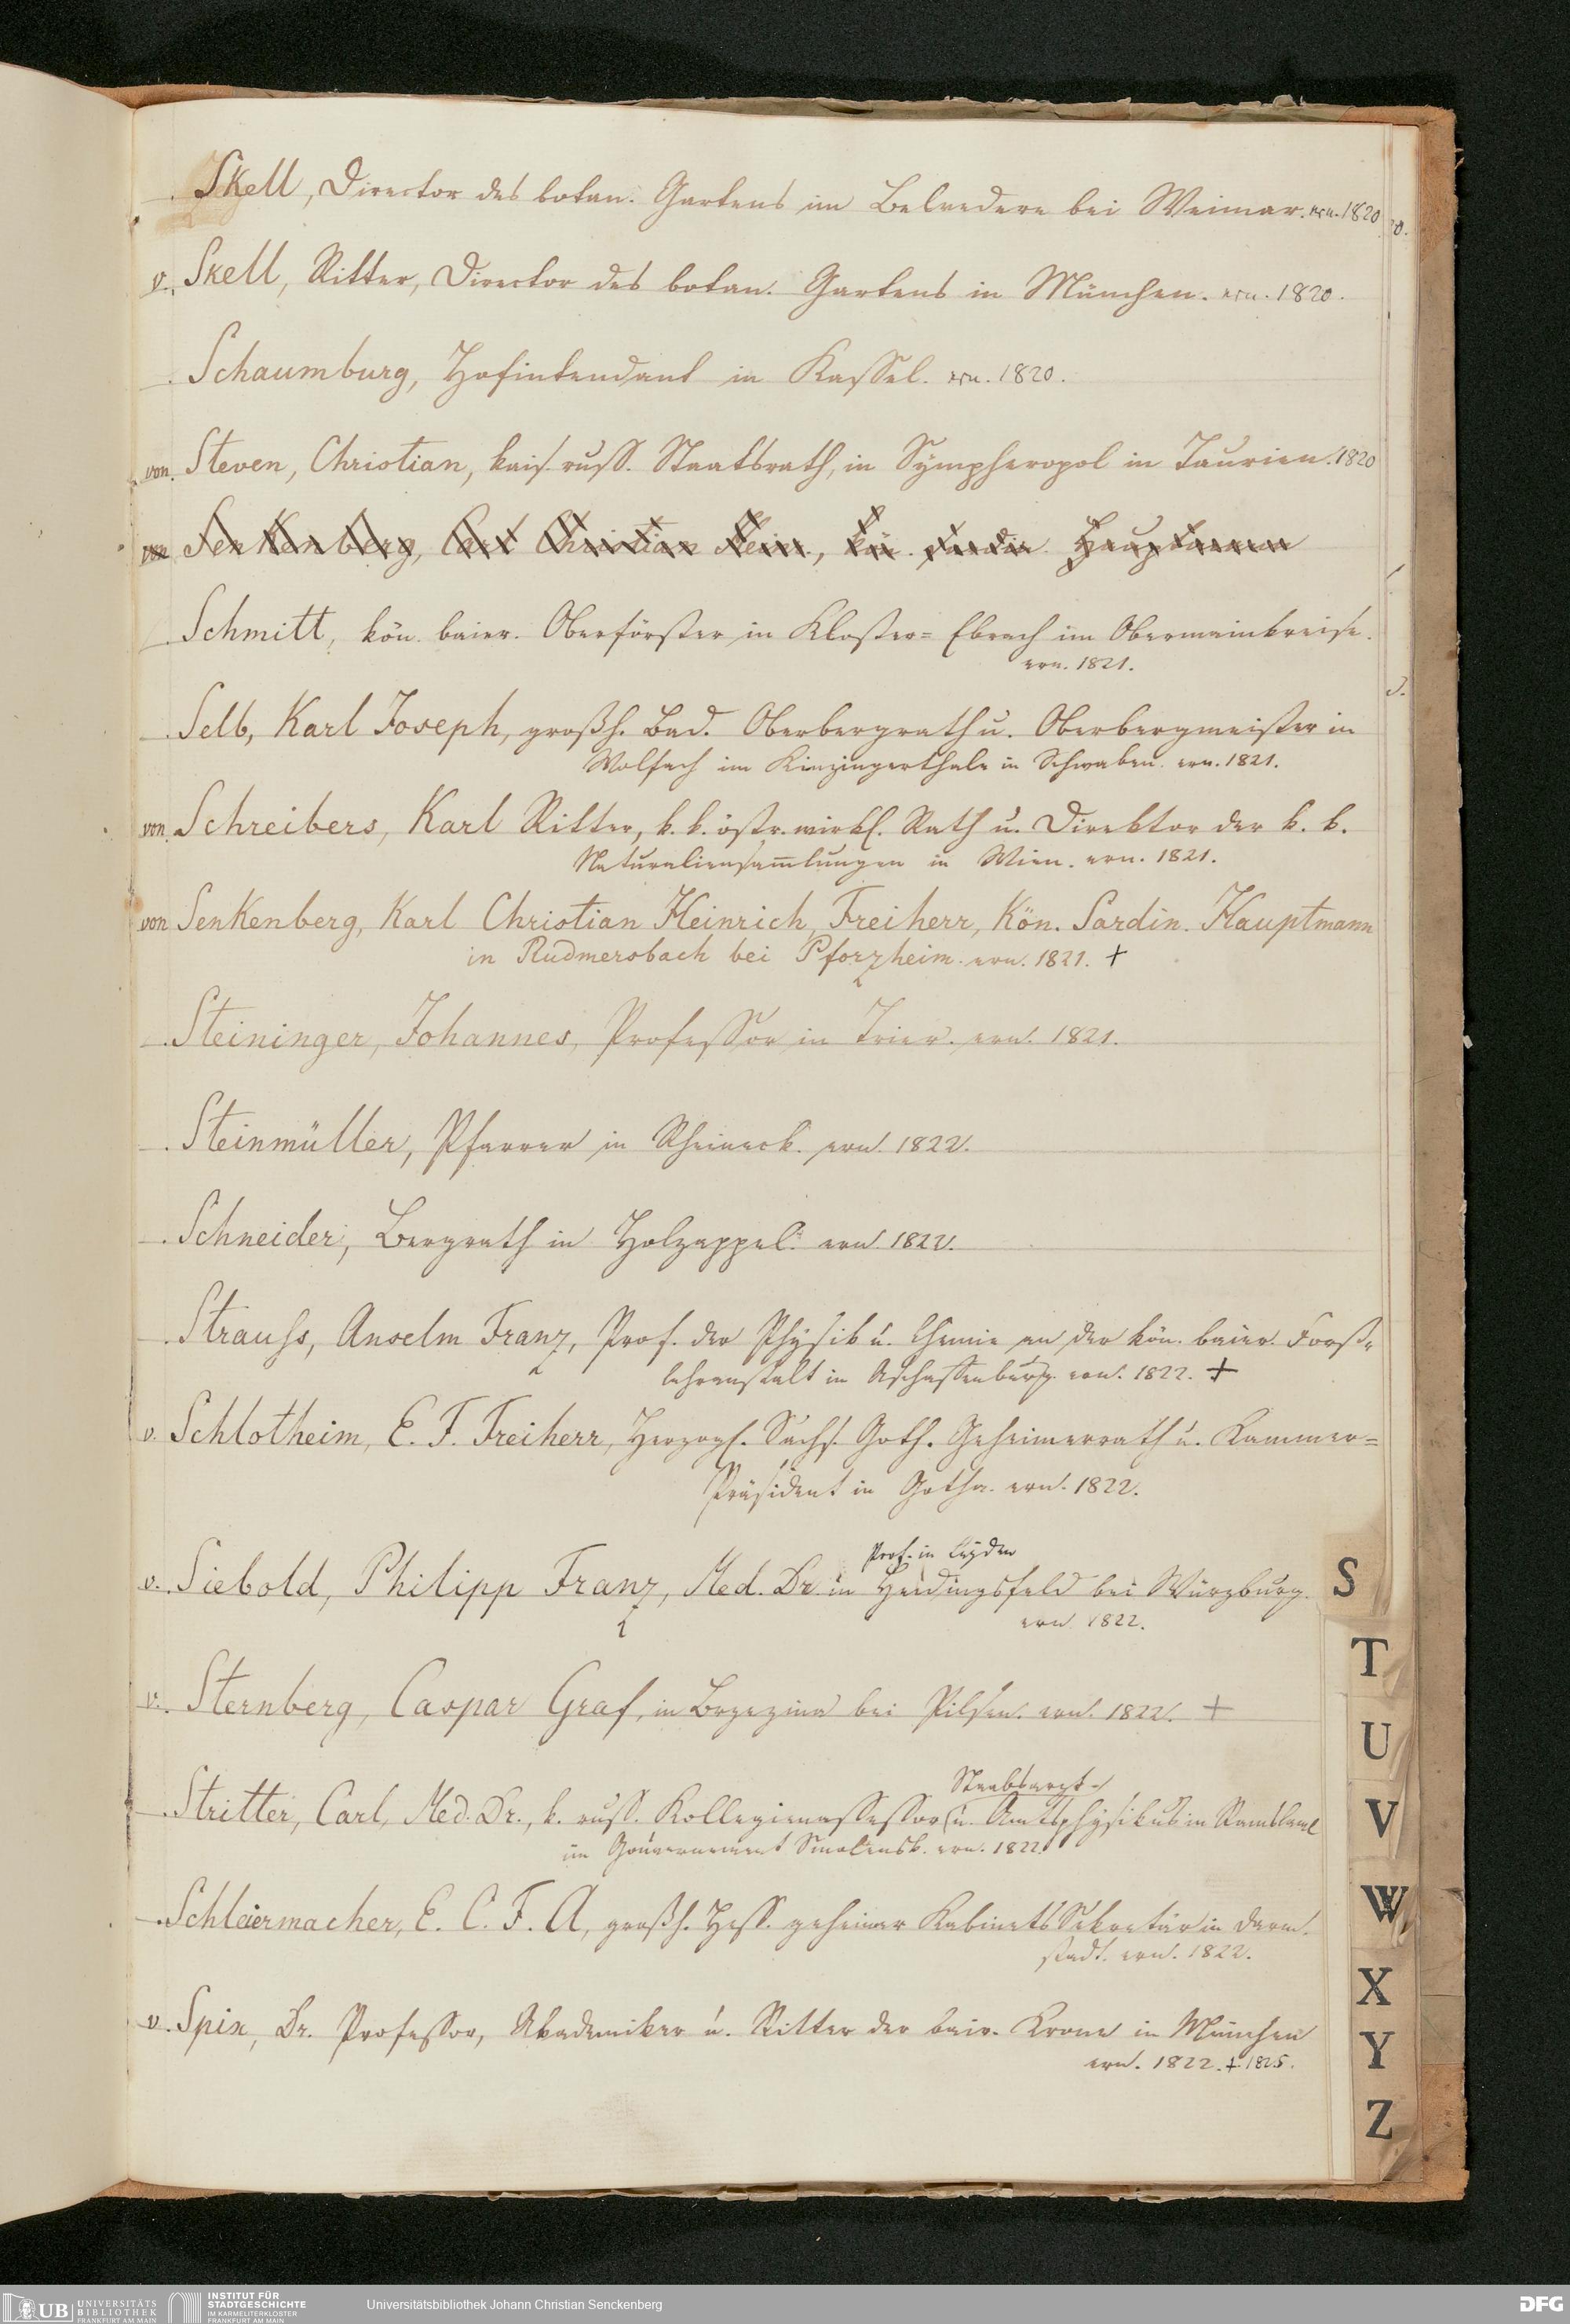 Skell, Director des botan. Gartens im Belvedere bei Weimar. ern. 1820
v. Skell, Ritter, Director des botan. Gartens in München. ern. 1820.
Schaumburg, Hofintendant in Kassel. ern. 1820.
von Steven, Christian, kais. russ. Staatsrath, in Sympheropol in Taurien. 1820
von Senkenberg, Carl Christian Heinr., kön. sardin. Hauptmann
Schmitt, kön. baier. Oberförster in Kloster=Ebrach im Obermainkreise.
ern. 1821.
Selb, Karl Joseph, großh. Bad. Oberbergrath u. Oberbergmeister in
Wolfach im Kinzingerthale in Schwaben. ern. 1821.
von Schreibers, Karl Ritter, k. k. östr. wirkl. Rath u. Direktor der k. k.
Naturaliensam̅lungen in Wien. ern. 1821.
von Senkenberg, Karl Christian Heinrich, Freiherr, Kön. Sardin. Hauptmann
in Rudmersbach bei Pforzheim. ern. 1821. +
Steininger, Johannes, Professor in Trier. ern. 1821.
Steinmüller, Pfarrer in Rheineck. ern. 1822.
Schneider, Bergrath in Holzappel. ern. 1822.
Strauss, Anselm Franz, Prof. der Physik u. Chemie an der kön. baier. Forst=
lehranstalt in Aschaffenburg. ern. 1822. +
v. Schlotheim, E. F. Freiherr, Herzogl. Sachs. Goth. Geheimerrath u. Kammer=
Präsident in Gotha. ern. 1822.
Prof. in Leyden
v. Siebold, Philipp Franz, Med. Dr. in Heidingsfeld bei Würzburg.
ern. 1822.
v. Sternberg, Caspar Graf, in Brzezina bei Pilsen. ern. 1822. +
Staabsarzt
Stritter, Carl, Med. Dr., k. russ. Kollegienassessor u. Amtsphysikus in
im Gouvernement Smolensk. ern. 1822.
Schleiermacher, E. C. F. A, großh. Hess. geheimer Kabinets Sekretär in Darm.
stadt. ern. 1822.
v. Spix, Dr. Professor, Akademiker u. Ritter der bair. Krone in München
ern. 1822. +. 1825.
S
T
U
V
W
X
Y
Z
UB UNIVERSITÄTS
BIBLIOTHEK
FRANKFURT AM MAIN
INSTITUT FÜR
STADTGESCHICHTE
IM KARMELITERKLOSTER
FRANKFURT AM MAIN
Universitätsbibliothek Johann Christian Senckenberg
DFG